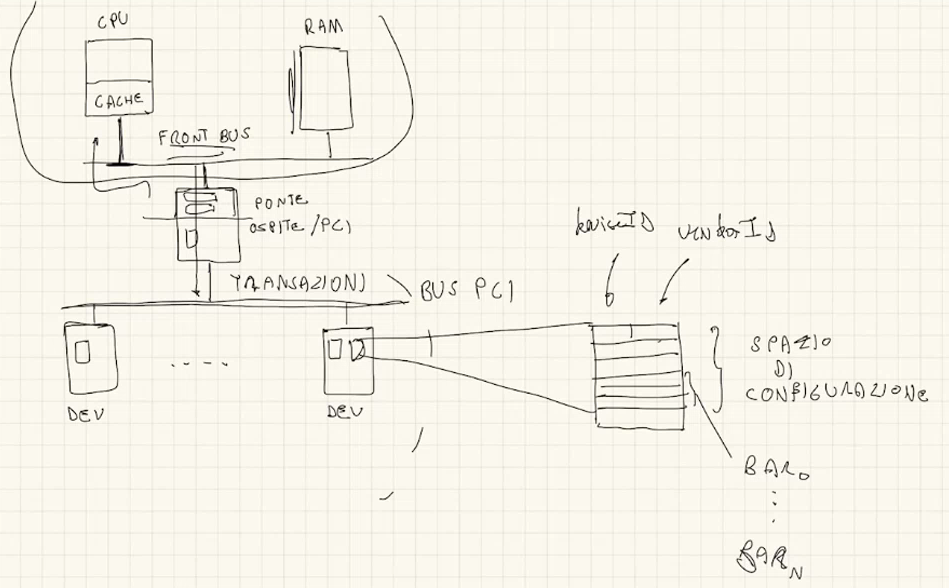 CPU
RAM
CACHE
FRONT BUS
PONTE
OSPITE/PCI
TRANSAZIONI
BUS PCI
DEV
....
DEV
deviceID
vendorID
SPAZIO
DI
CONFIGURAZIONE
BAR0
⋮
BARN